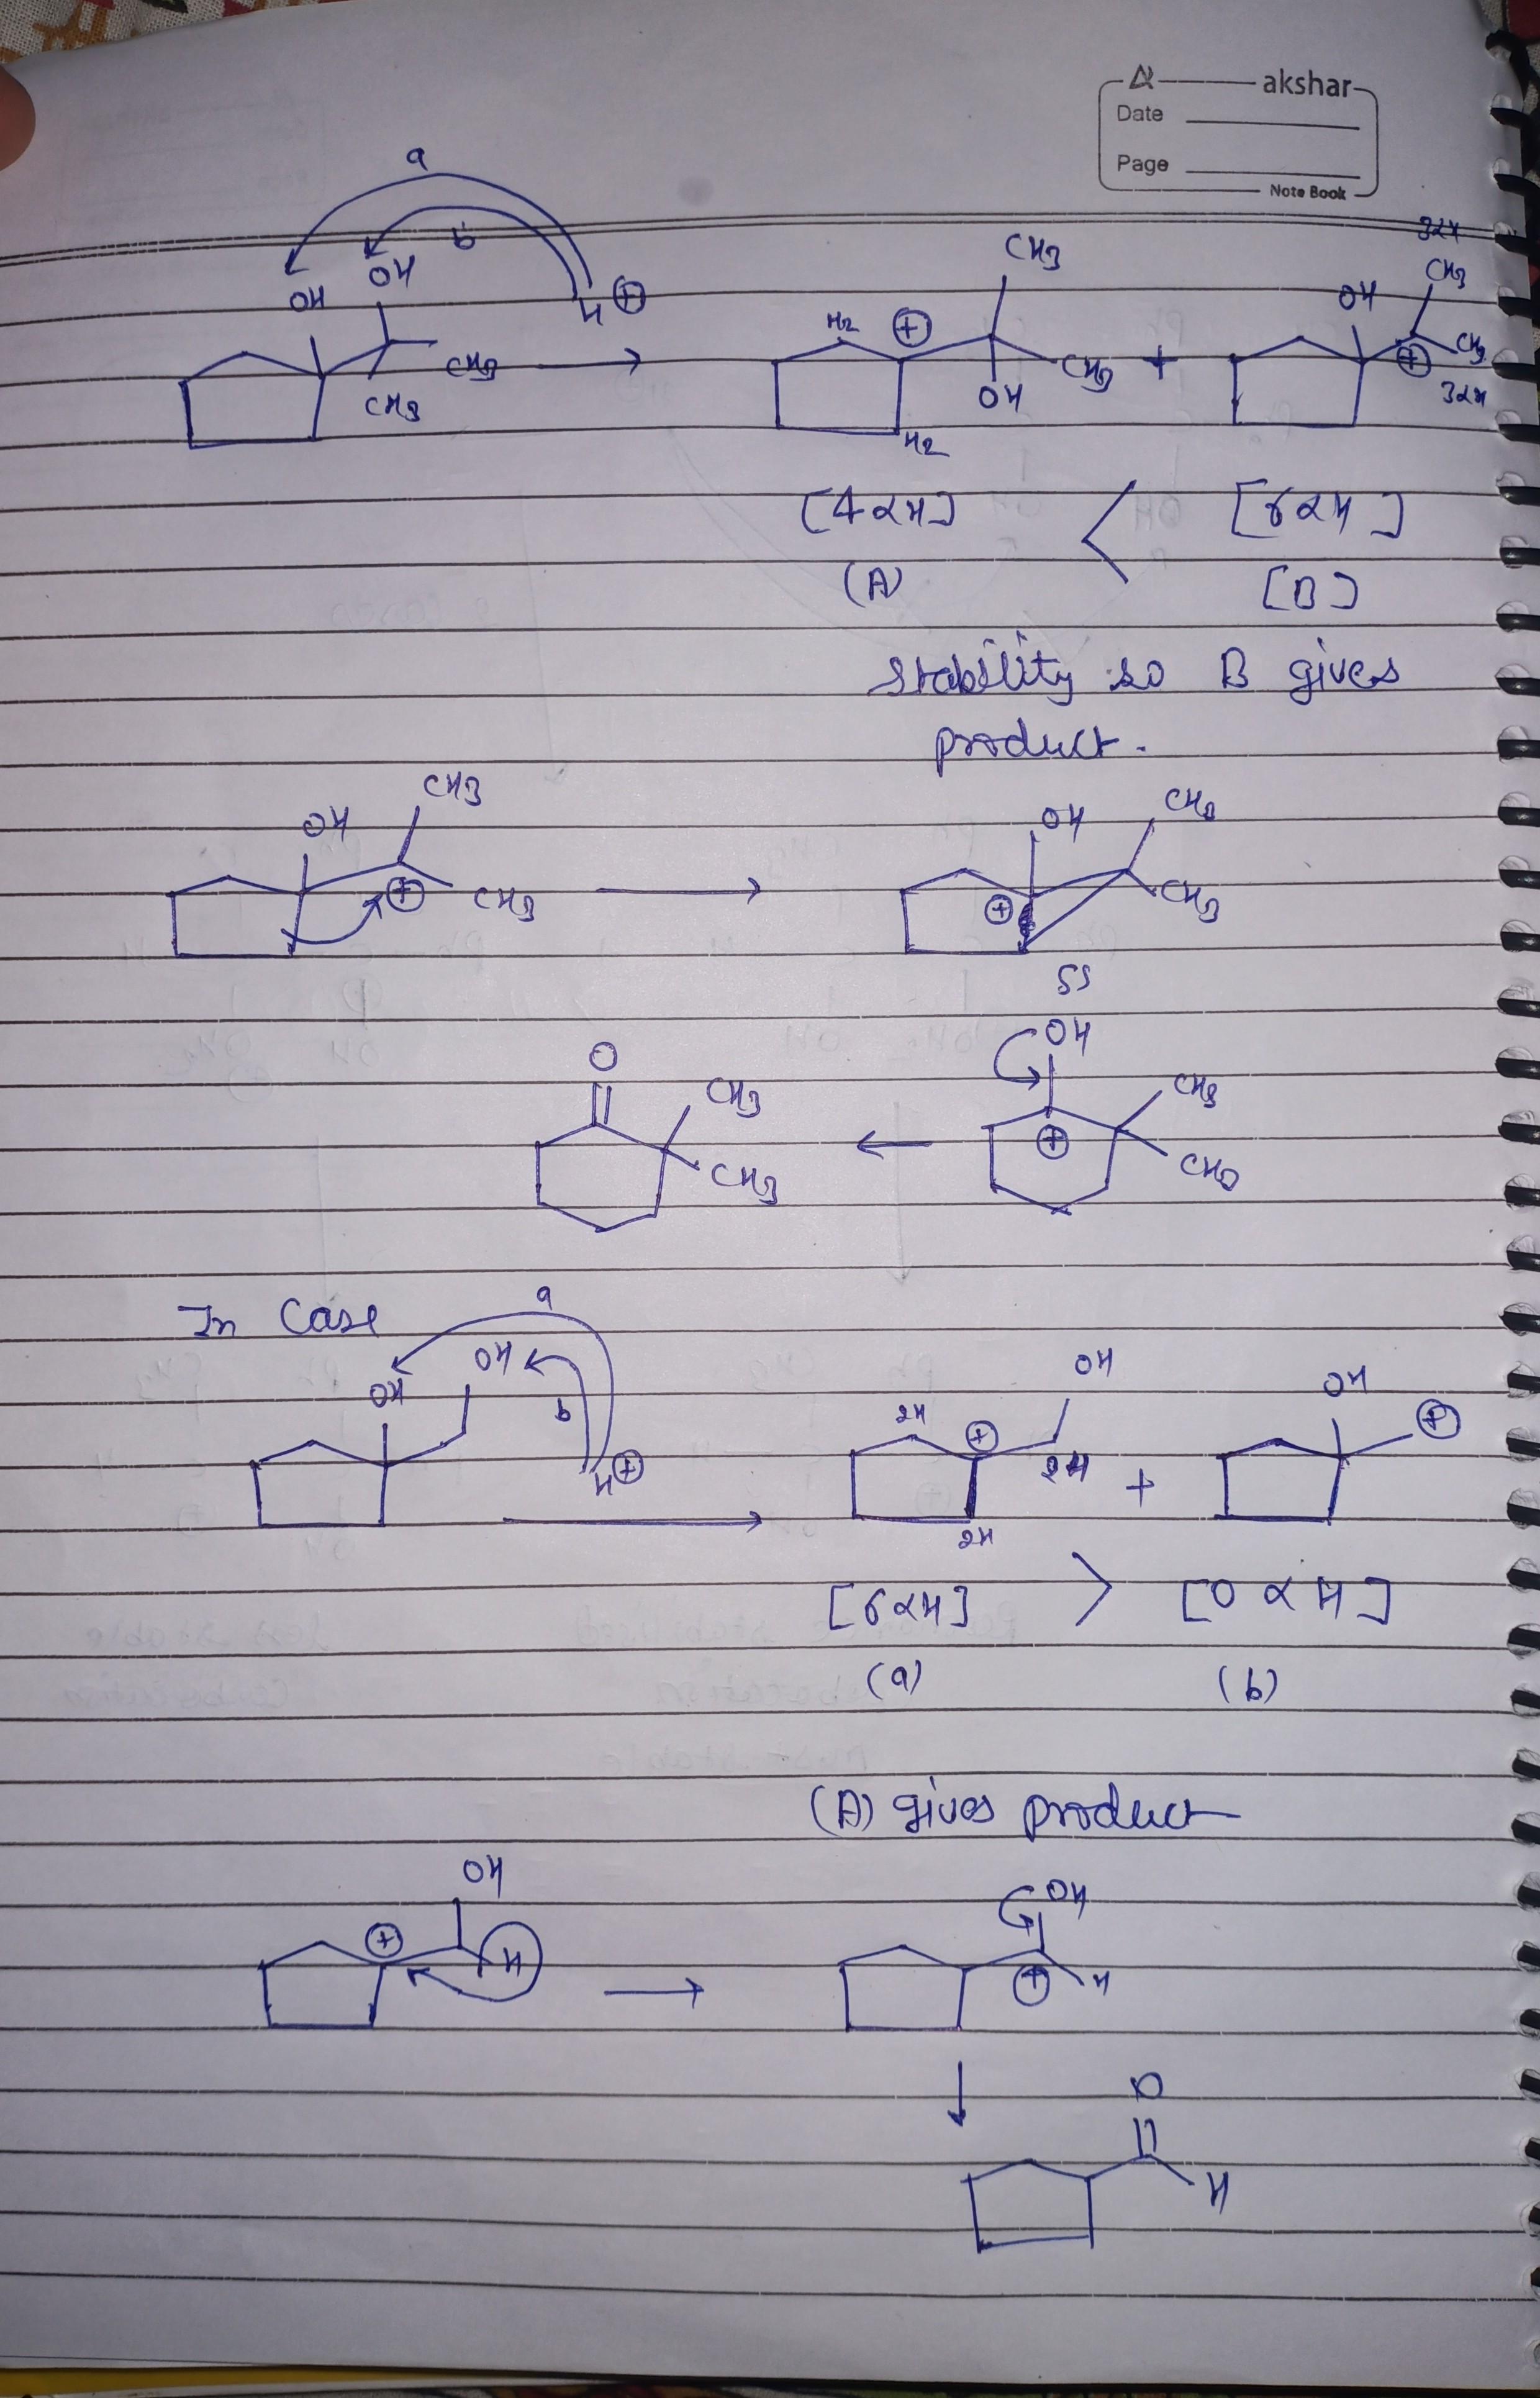 akshar
Date
Page
Note Book
a
b
OH OH H ⊕
CH3
CH3
CH3
H2 ⊕
CH3
OH
H2
+
3αH
CH3
OH
⊕ CH3
3αH
[4αH] < [6αH]
(A) [B]
Stability so B gives
product.
OH CH3
⊕ CH3
OH CH3
⊕ CH3
SS
OH
⊕ CH3
CH3
O
CH3
CH3
In Case
a
OH OH
b
H⊕
OH
2H ⊕
2H
2H
+
OH ⊕
[6αH] > [0 αH]
(a) (b)
(A) gives product
OH
⊕ H
OH
⊕ H
O
H